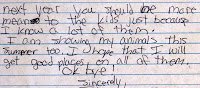 next year you should be more
mean to the kids just because
I know a lot of them.
I am showing my animals this
summer too. I hope that I will
get good places on all of them.
Ok bye!
Sincerely,